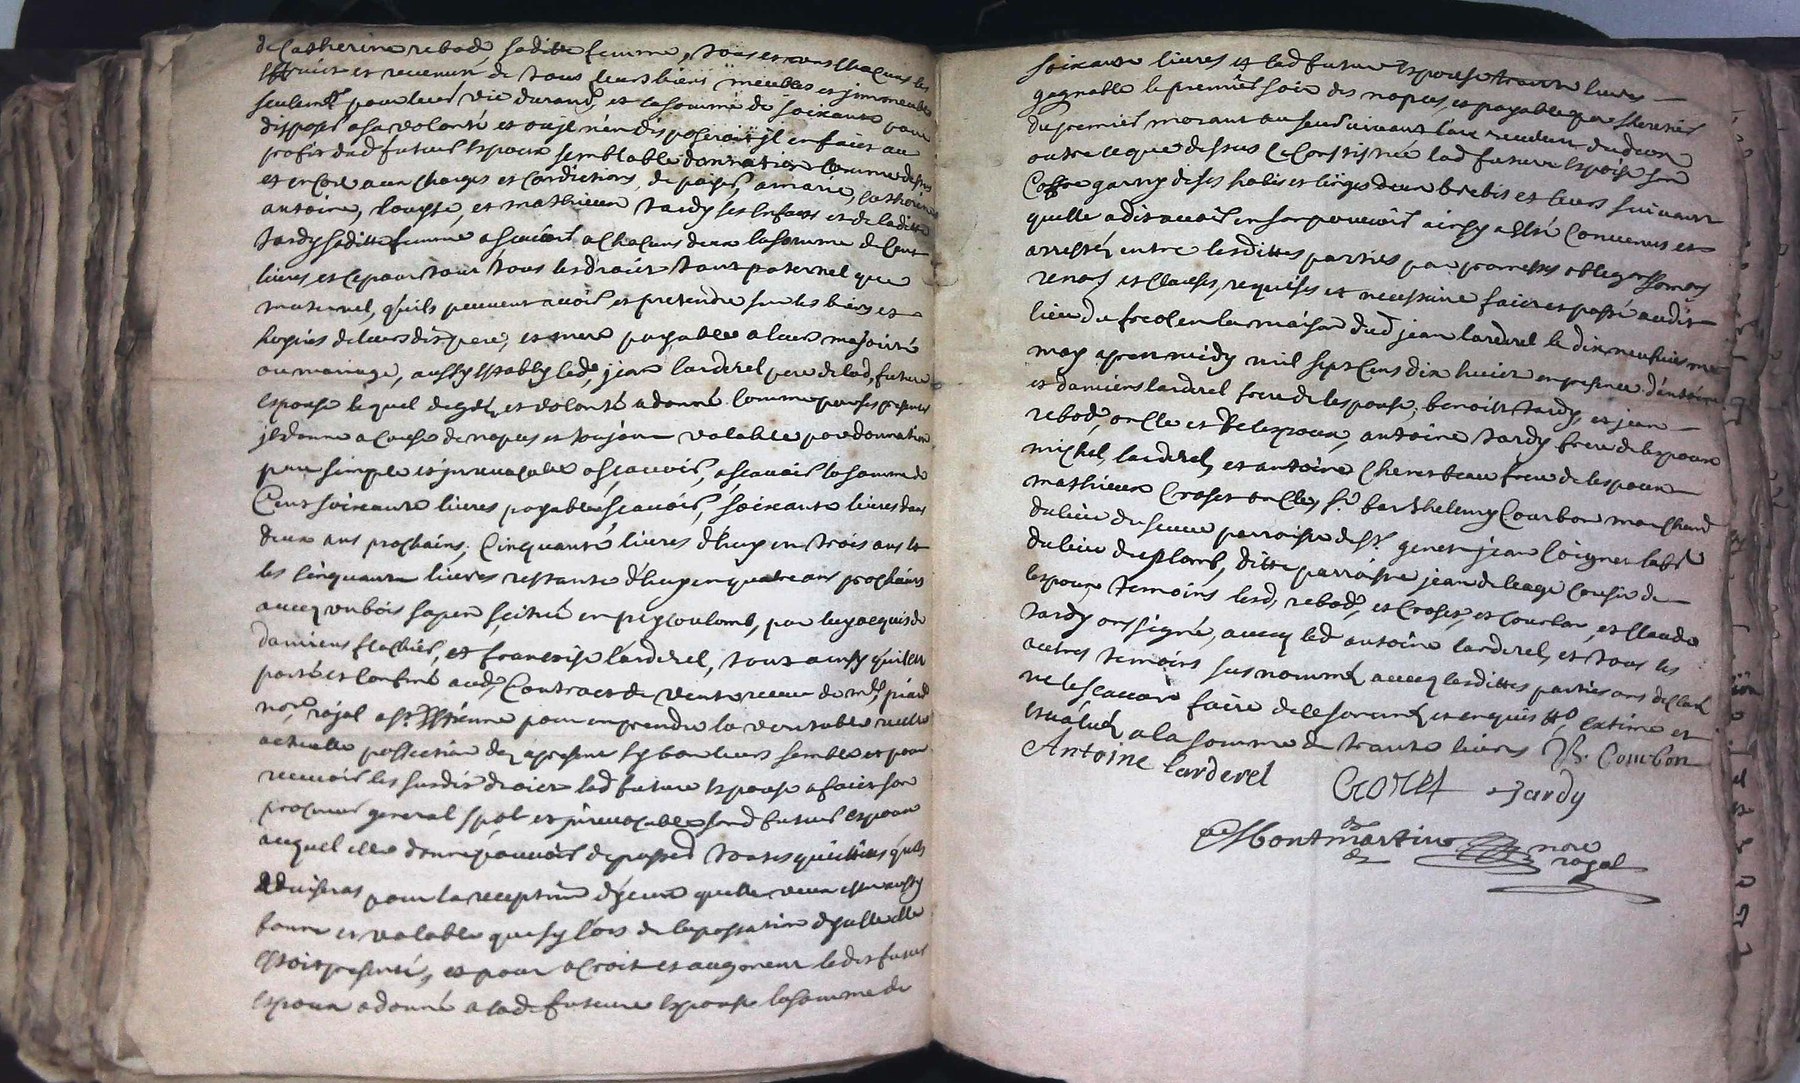 de Catherine rebod saditte femme, tous et uns chacuns les
fruict et revenus de tous leurs biens meubles et jmmeubles
seulemt pour leur vie durand, et la somme de soixante pour
disposer a sa volonté et ou jl n'en disposeroit jl en faict au
profit dud futur Espoux semblable donnation comme dessus
et encore aux charges et Conditions de païer a marie, Catherine
antoine, louyse, et mathieu tardy ses Enfants et de laditte
saditte femme a scavoir a chacuns deux la somme de Cent
livres et Ce pour tous les droict tant paternel que
maternel, qu'ils peuvent avoir et pretendre sur les biens et
hoiries de leurs dits pere, et mere payable a leurs majorité
ou mariage, aussy Estably led, jean larderel pere de lad, future
Espouse lequel de gré, et volonté a donné Comme par ses presentes
jl donne a Cause de nopces et toujour valable par donnation
pure simple et jrrevocable a scavoir, a scavoir la somme de
Cent soixante livres payable scavoir, soixante livres dans
deux ans prochains, Cinquante livres d'huy en trois ans et
les Cinquante livres restante d'huy en quatre ans prochains
avecq un bois sapin scitué en pey Coulomb, par luy acquis de
damiens flachier, et francoise larderel, tout ainsy qu'il est
porté et Confiné aud, Contract de vente receu de me,
nore, rojal a st Ettienne pour en prendre la veritable reelle
actuelle possession dez a present sy bon leurs semble et pour
recevoir les susdit droict lad future Espouse a faict son
procureur general spal et jrrevocable sond futur Espoux
auquel elle donne pouvoir de passer toutes quittances qu'il
advisera pour la reception d'jceux qu'elle veux estre aussy
bonne et valable que sy lors de la passation d'jcelle elle
Estoit presente, et pour accroit et augment ledit futur
Espoux a donné a lad future Espouse la somme de
soixante livres et lad future Espouse trante livres
gagnable le premier soir des nopces, et payable par
du premier mourant au survivant
outre ce que dessus Ce Constitué lad future Espouse son
Coffre garny de ses habis et linges deux brebis et leurs suivant
quelle a dit avoir en son pouvoir ainsy a esté Convenus et
arrestés entre lesdittes parties par promesses obligaons
renons et Clauses, requises et necessaire faict et passé audit
lieu du fecol en la maison dud jean larderel le dix neufuiesme
may apres midy mil sept Cens dix huict en presence d'antoine
et damiens larderel frere de lespouse, benoist tardy, et jean
rebod, oncle et de lespoux, antoine tardy frere de lespoux
michel, larderel, et antoine Cheret beau frere de lespoux
mathieu Croset oncle, sr. barthelemy Courbon marchand
du lieu du parroisse de st. genest jean loignet labr
du lieu du plomb, ditte parroisse jean deleage Cousin de
lespoux temoins lesd, rebod, et Croset, et Courbon, et Claude
tardy ont signé, avecq led antoine larderel, et tous les
autres temoins sus nommé avecq lesdittes parties ont declaré
ne le scavoir faire de le sommé et enquis et
Evalué a la somme de trante livres B. Courbon
Antoine larderel
CroZet tardy
de Montmartin nore
royal